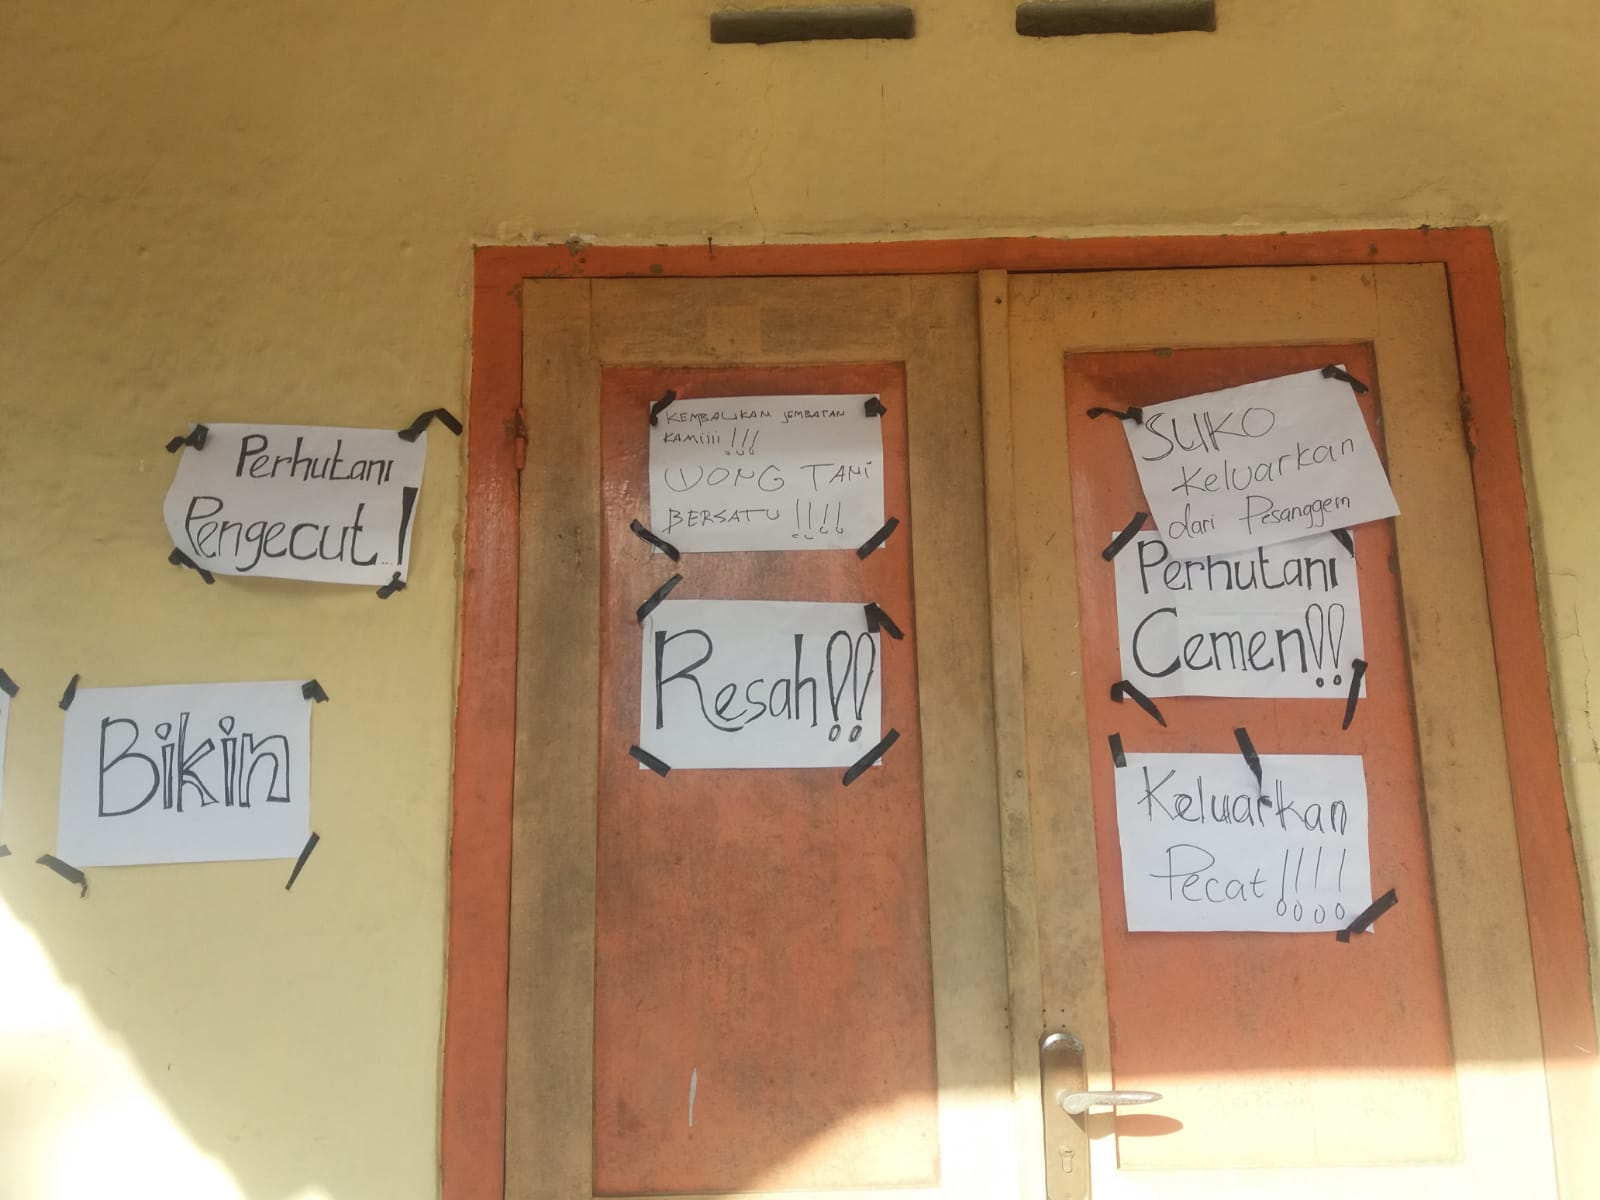 Perhutani
Pengecut...!
Bikin
KEMBALIKAN JEMBATAN
KAMIIII !!!
WONG TANI
BERSATU !!!!
Resah!!
SUKO
Keluarkan
dari Pesanggem
Perhutani
Cemen!!
Keluarkan
Pecat !!!!